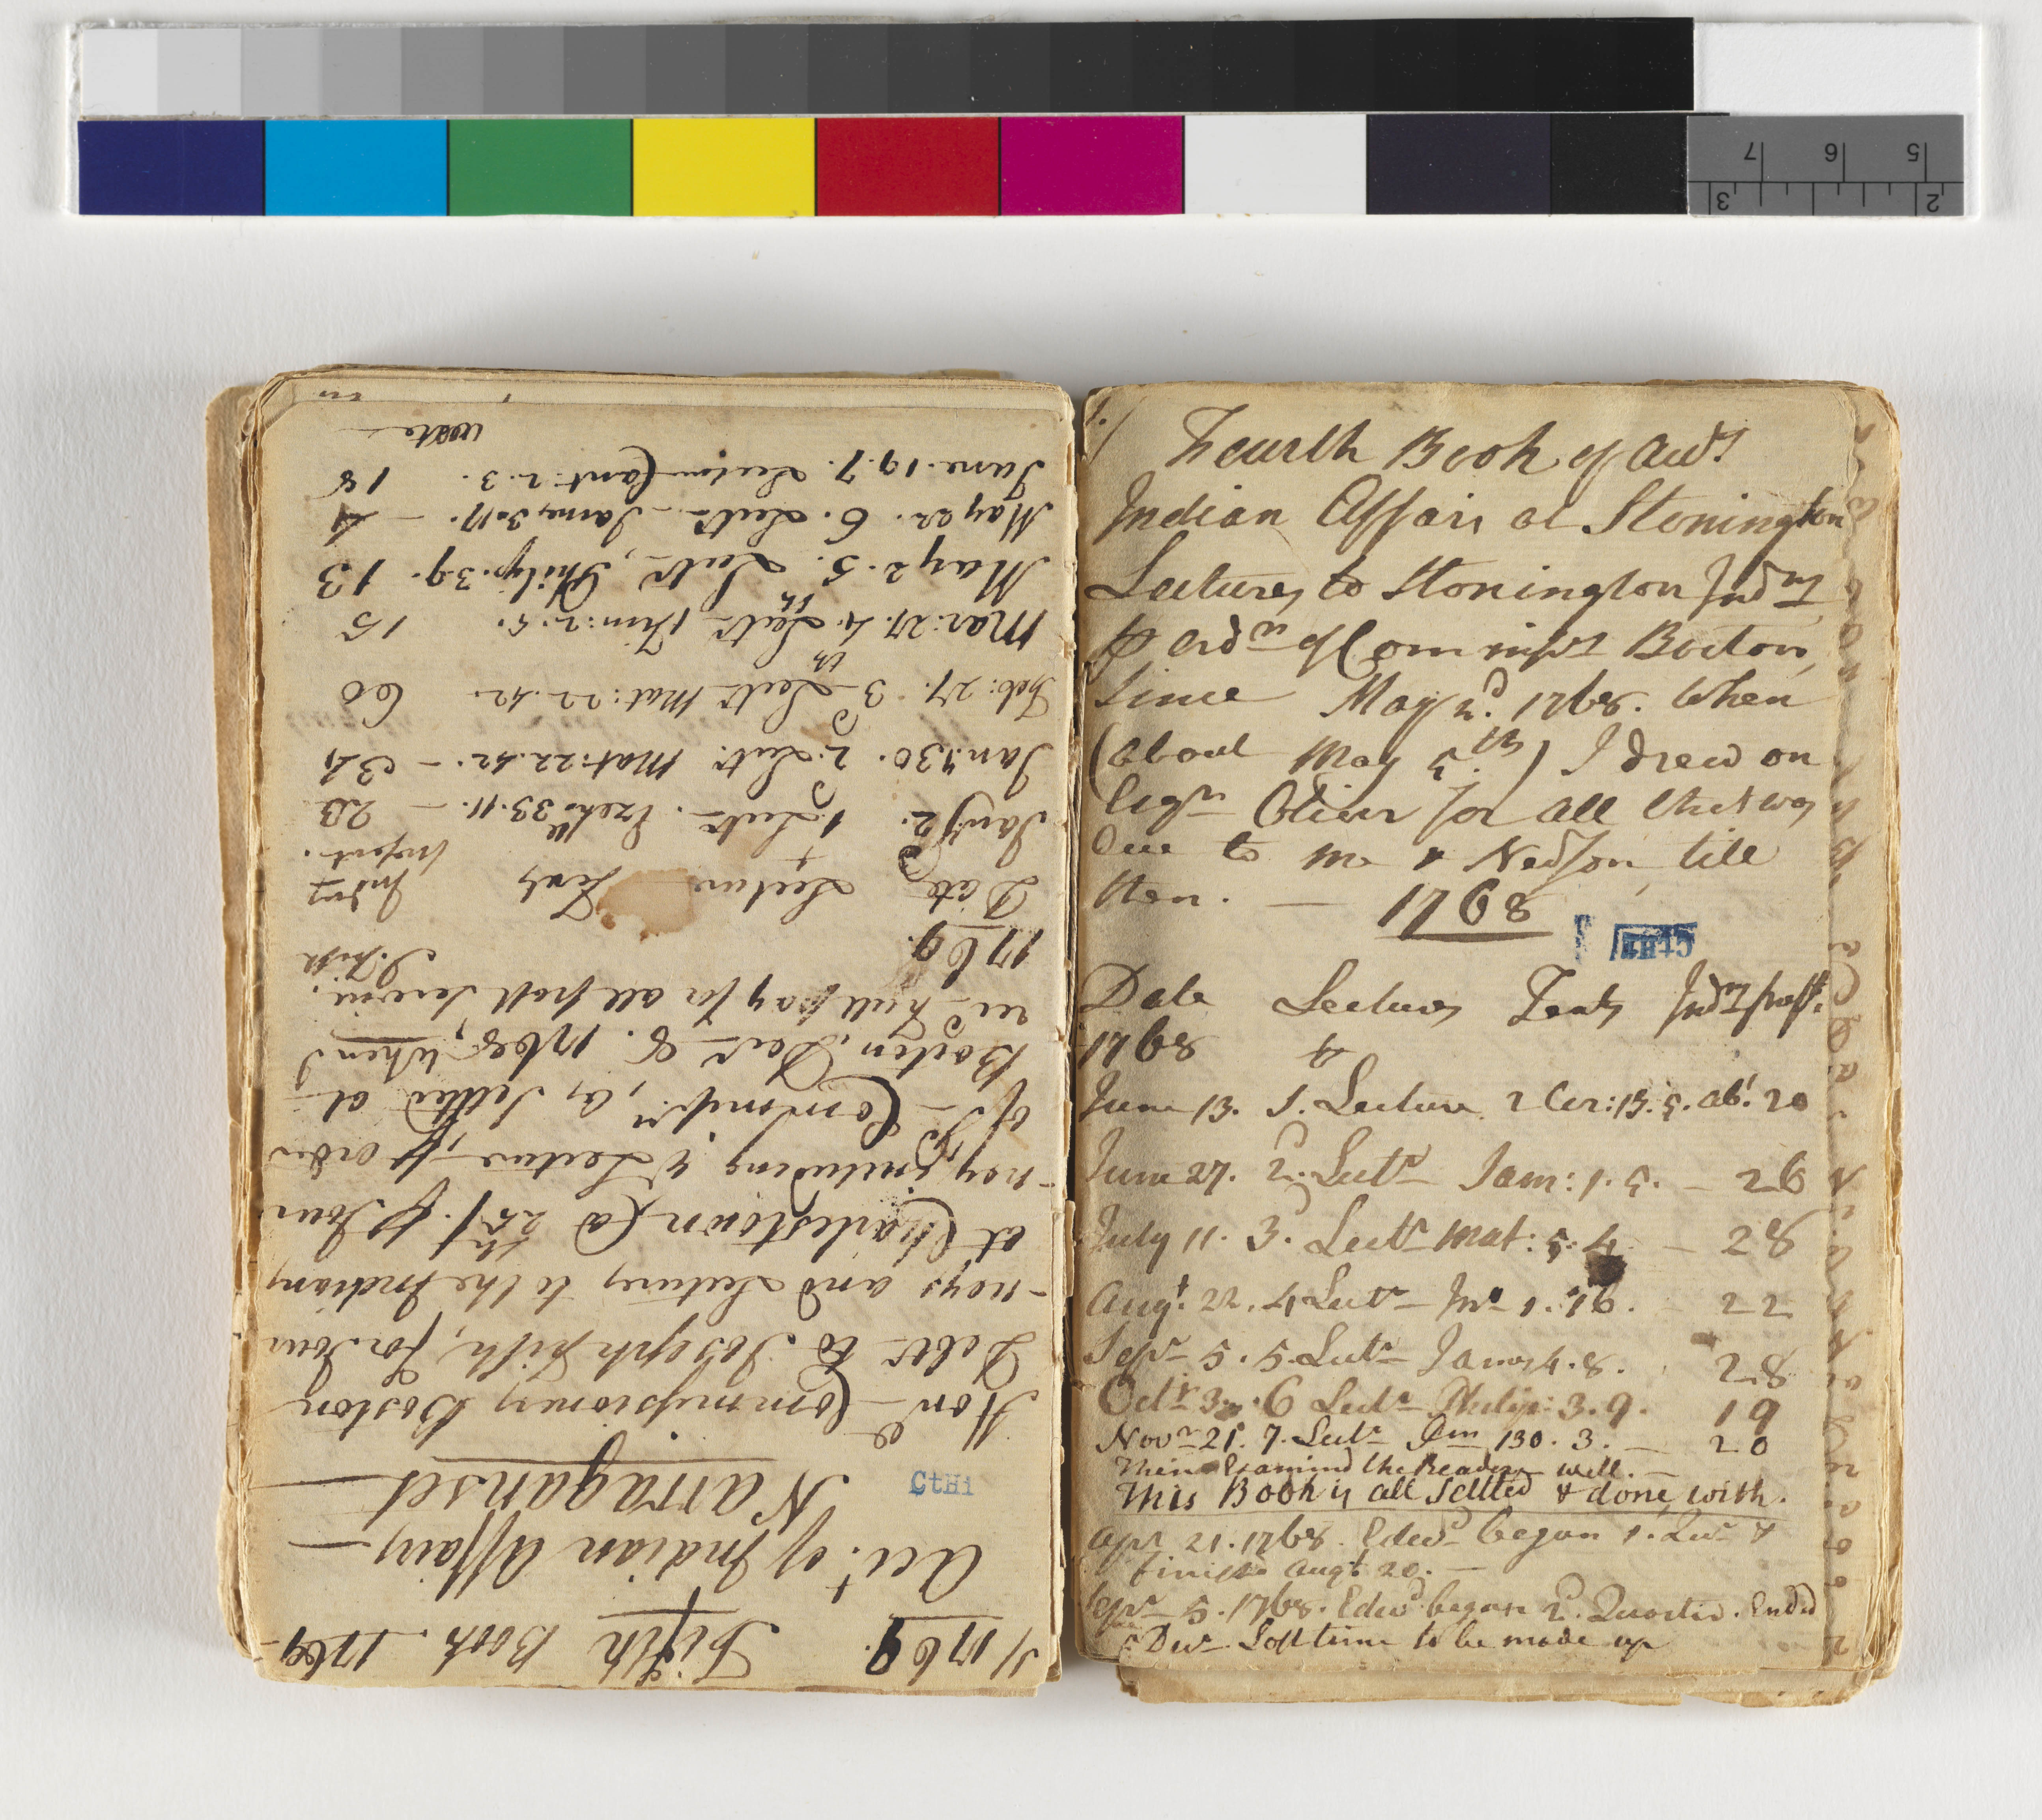 1.) Fourth Book of Acts
Indian Affairs at Stonington
Lectures to Stonington Indns
⅌ ordr of Commissrs Boston,
Since May 2d. 1768. When
(about May 5.th) I drew on
Esqr Oliver for all that was
Due to me & Nedson, till
then. — 1768
CtHi
Date Lectures Texts Indns pres.t
1768
June 13. 1. Lecture 2 Cor: 13. 5. abt. 20
June 27. 2d. Lectr Jam: 1. 5. — 26
July 11. 3d. Lectr Mat: 5. 4 — 28
Augt. 22. 4 Lectr — Jno 1. 16. — 22
Sepr 5. 5. Lectr James 4. 8. 28
Octr 3. 6 Lectr Philip: 3. 9. 19
Novr 21. 7. Lectr Psm 130. 3. — 20
Then Examined the Readers well. —
This Book is all Settled & done with.
Apr 21. 1768. Edwd began 1. Qur &
finisd Augt 20. —
Sepr 5. 1768. Edwd began 2d. Quarter. Ended
Decr. Lost time to be made up
1/ 1769. Fifth Book. 1769
Acct. of Indian Affairs —
Narraganset
CtHi
Honle Commissioners Boston
Debtr to Joseph Fish, for Jour
-neys and Lectures to the Indians
at Charlestown @ 25/. ⅌ Jour
-ney, including ye Lecture, ⅌ order
of sd Commissrs, as Settled at
Boston, Decr 8. 1768, when I
recd full pay for all past Service.
J. Fish
1769.
Date Lecture Texts Indns
present.
Jany 2. 1st Lectr. Ezek. 33. 11. — 23
Jany 30. 2d. Lectr. Mat: 22. 42. — 34
Feb: 27. 3d Lectr Mat: 22. 42. 60
Mar: 27. 4th Lectr 1 Tim: 2. 5. 15
May 2. 5th. Lectr, Philip: 3. 9. 13
May 22. 6. Lectr — James 3. 17. — 4
June. 19. 7. Lecture Cant: 2. 3. 18